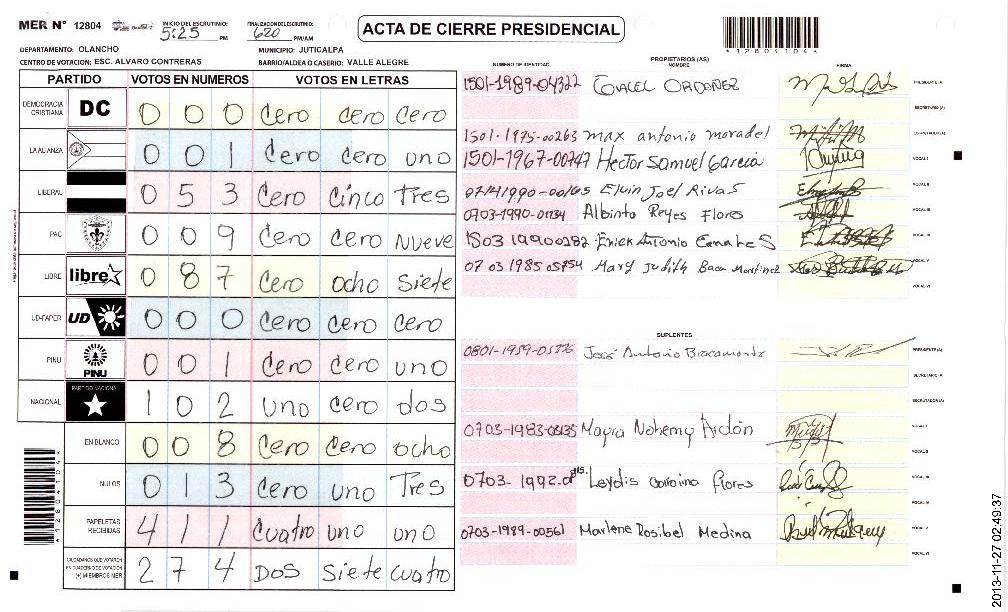 MER Nº 12804
INICIO DEL ESCRUTINIO: 5:25 PM
FINALIZACION DEL ESCRUTINIO: 620 PM/AM
ACTA DE CIERRE PRESIDENCIAL
*12804104*
DEPARTAMENTO: OLANCHO
MUNICIPIO: JUTICALPA
CENTRO DE VOTACION: ESC. ALVARO CONTRERAS
BARRIO/ALDEA O CASERIO: VALLE ALEGRE
PARTIDO VOTOS EN NUMEROS VOTOS EN LETRAS
DEMOCRACIA CRISTIANA DC 0 0 0 Cero cero cero
LA ALIANZA 0 0 1 Cero cero uno
LIBERAL 0 5 3 Cero cinco tres
PAC 0 0 9 Cero cero nueve
LIBRE libre 0 8 7 Cero ocho siete
UD-FAPER UD 0 0 0 Cero cero cero
PINU PINU 0 0 1 Cero cero uno
NACIONAL PARTIDO NACIONAL 1 0 2 uno cero dos
EN BLANCO 0 0 8 Cero cero ocho
NULOS 0 1 3 Cero uno Tres
PAPELETAS RECIBIDAS 4 1 1 Cuatro uno uno
CIUDADANOS QUE VOTARON EN CUADERNO DE VOTACION (+) MIEMBROS MER 2 7 4 DOS siete cuatro
*12804104*
PROPIETARIOS (AS)
NUMERO DE IDENTIDAD NOMBRE FIRMA
1501-1989-04322 ORDOÑEZ PRESIDENTE(A)
SECRETARIO(A)
1501-1975-00263 max antonio moradel ESCRUTADOR(A)
1501-1967-00747 Hector Samuel Garcia VOCAL I
Elvin Joel Rivas VOCAL II
0703-1990-01134 Albinto Reyes Flores VOCAL III
1503 1990 0282 Erick Antonio Canales VOCAL IV
07 03 1985 05754 Mary Judith Baca Martinez VOCAL V
VOCAL VI
SUPLENTES
José Antonio Bracamonte PRESIDENTE(A)
SECRETARIO(A)
ESCRUTADOR(A)
0703-1983-03135 Mayra Nohemy Ardón VOCAL I
VOCAL II
0703-1992 Leydis Carolina flores VOCAL III
VOCAL IV
0703-1989-00561 Marlene Rosibel Medina VOCAL V
VOCAL VI
2013-11-27 02:49:37